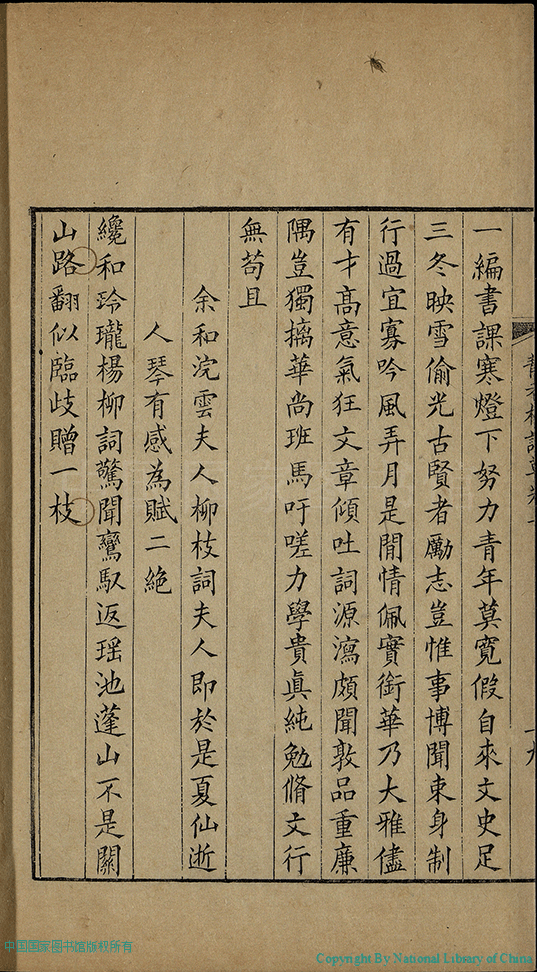 一編書課寒燈下努力青年莫寛假自來文史足
三冬映雪偷光古賢者勵志豈惟事博聞束身制
行過宜寡吟風弄月是閒情佩實銜華乃大雅儘
有才高意氣狂文章傾吐詞源瀉頗聞敦品重廉
隅豈獨摛華尚班馬吁嗟力學貴眞純勉脩文行
無苟且
余和浣雲夫人柳枝詞夫人即於是夏仙逝
人琴有感為賦二絶
纔和玲瓏楊柳詞驚聞鸞馭返瑶池蓬山不是關
山路翻似臨歧贈一枝
中国国家图书馆版权所有
Copyright By National Library of China